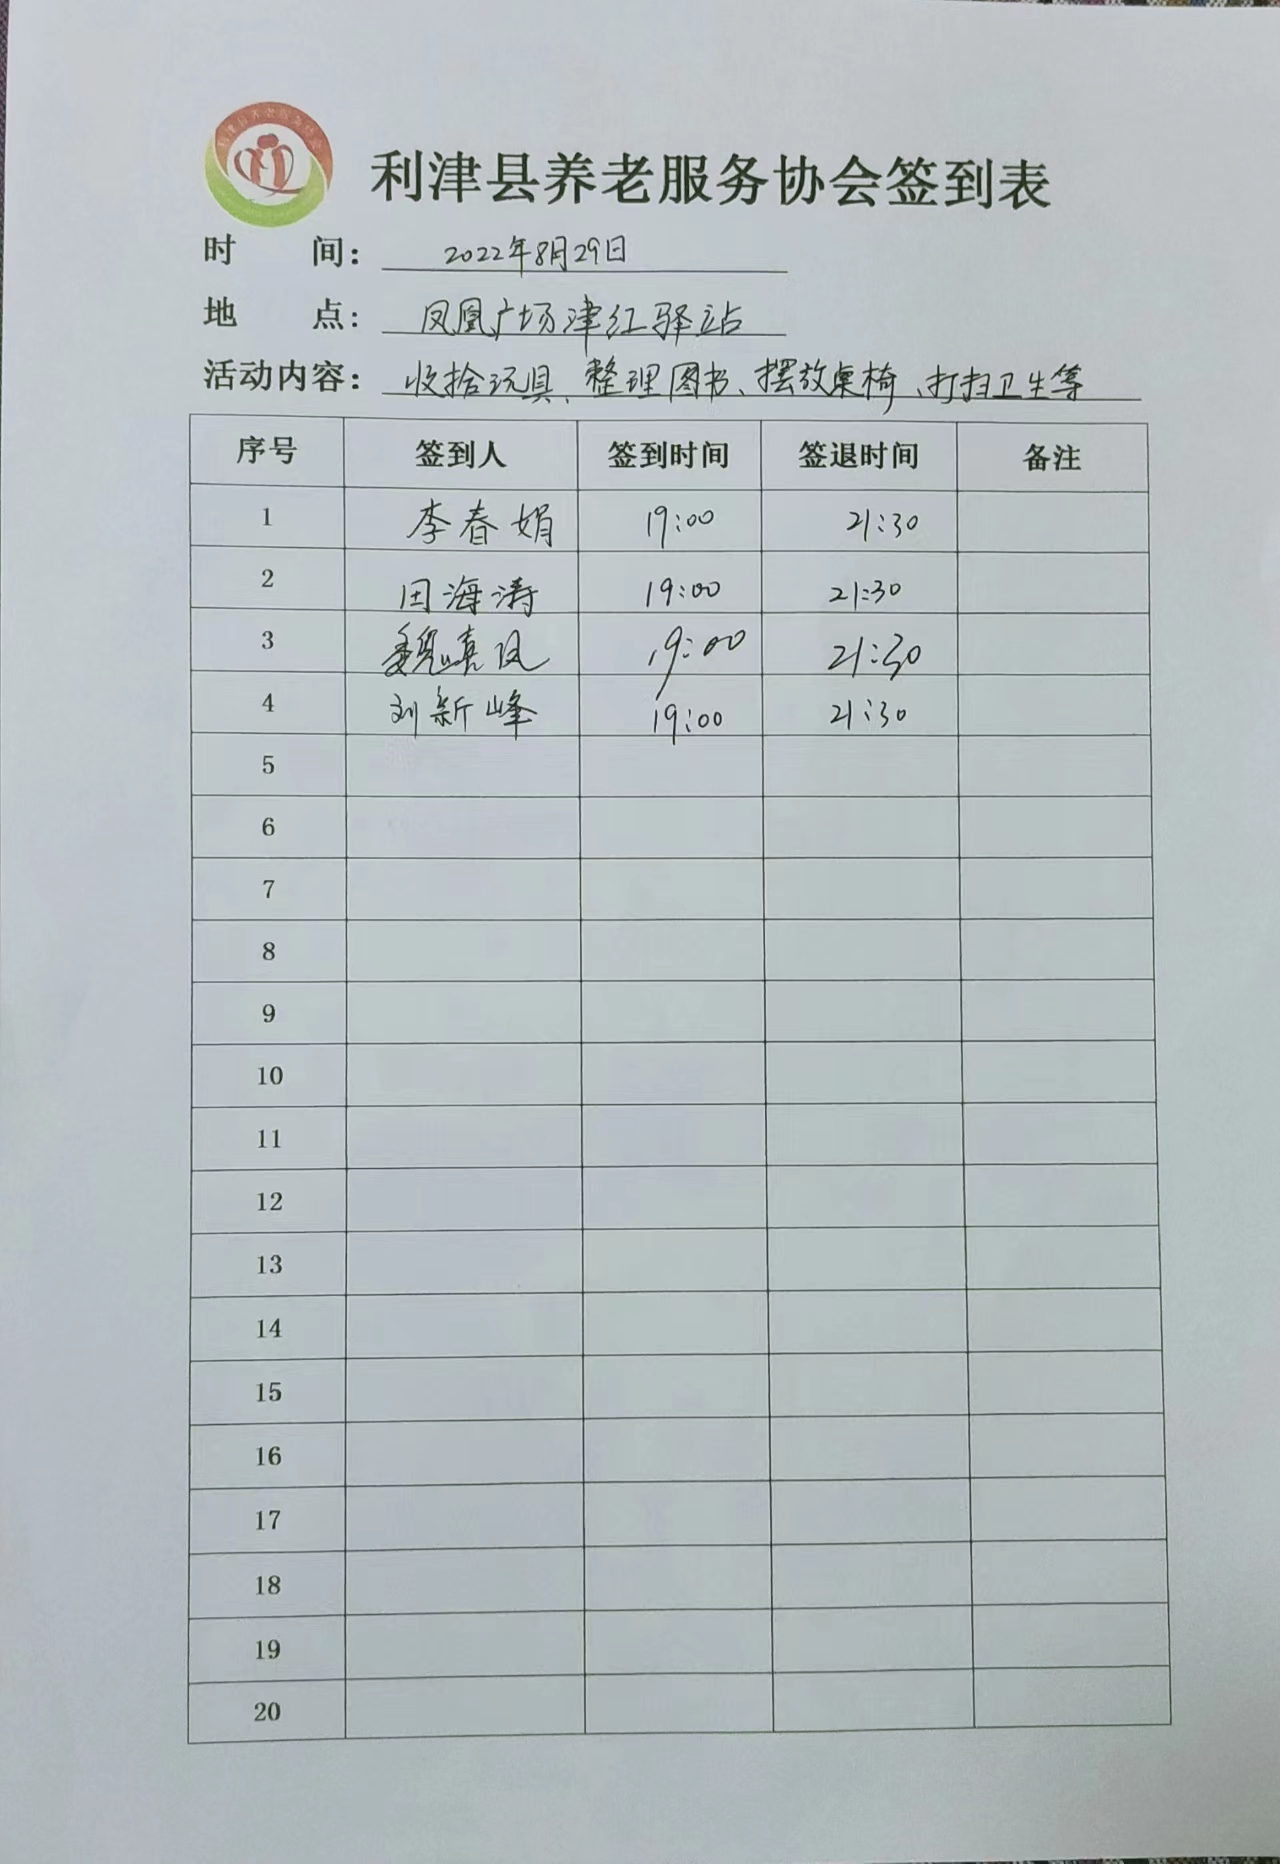 利津县养老服务协会
利津县养老服务协会签到表
时 间：2022年8月29日
地 点：凤凰广场津红驿站
活动内容：收拾玩具、整理图书、摆放桌椅、打扫卫生等
序号 签到人 签到时间 签退时间 备注
1 李春娟 19:00 21:30
2 田海涛 19:00 21:30
3 魏嘉凤 19:00 21:30
4 刘新峰 19:00 21:30
5
6
7
8
9
10
11
12
13
14
15
16
17
18
19
20